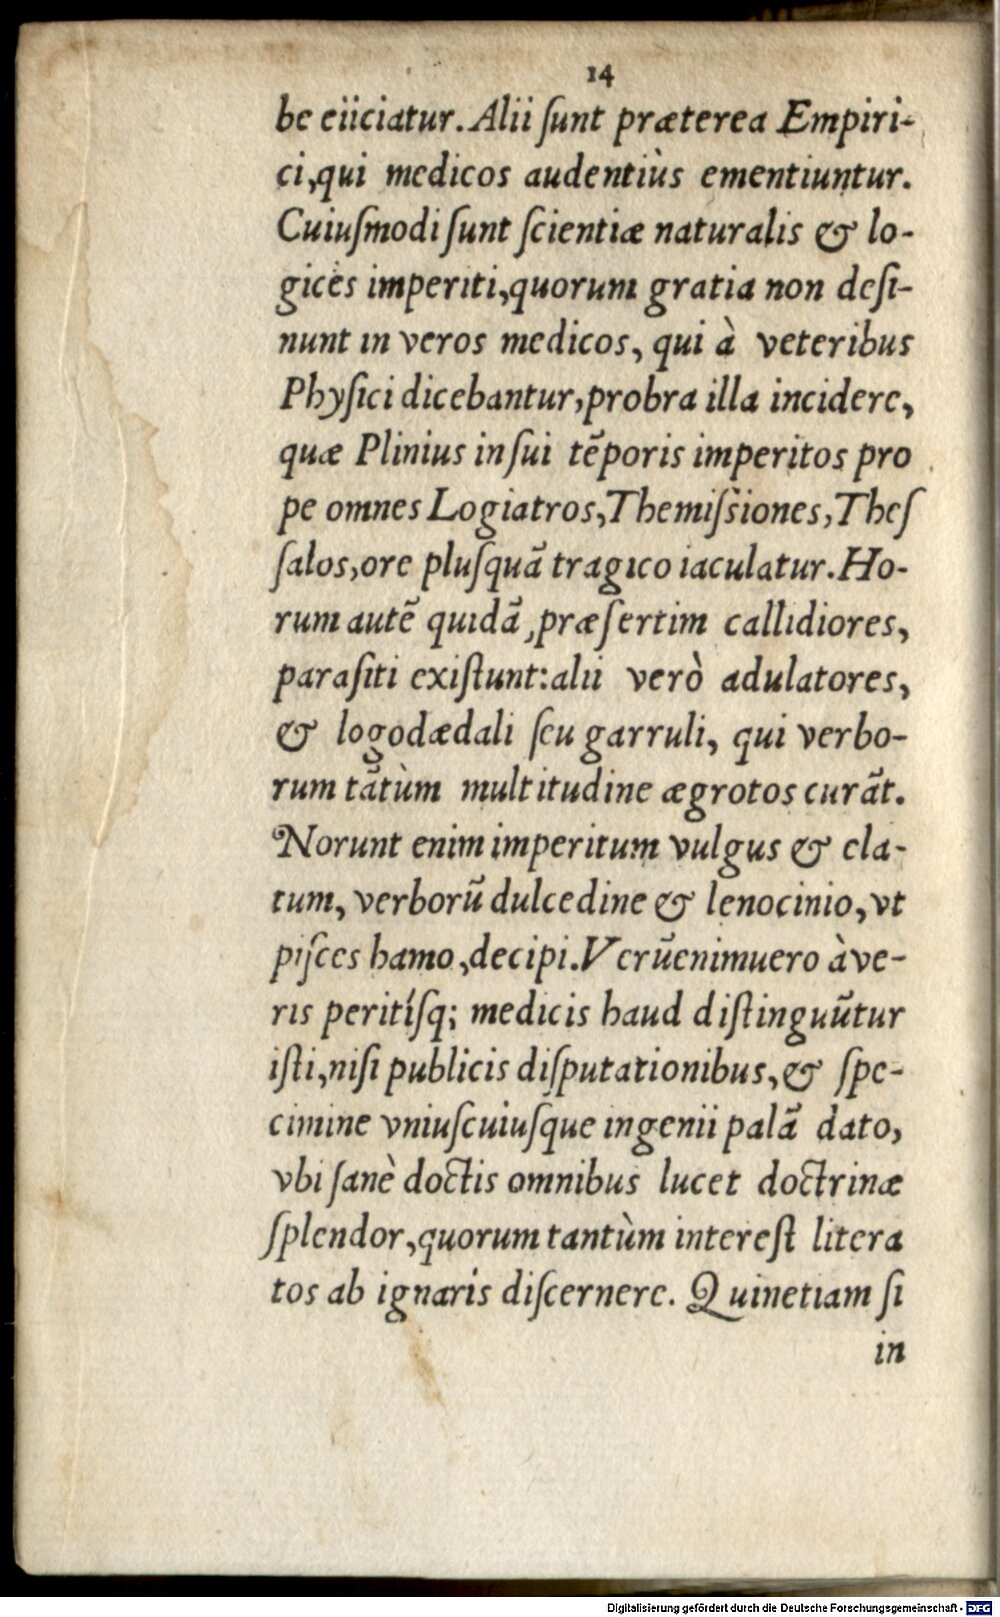 14
be eiiciatur. Alii ſunt præterea Empiri-
ci, qui medicos audentiùs ementiuntur.
Cuiuſmodi ſunt ſcientiæ naturalis & lo-
gicès imperiti, quorum gratia non deſi-
nunt in veros medicos, qui à veteribus
Phyſici dicebantur, probra illa incidere,
quæ Plinius in ſui tēporis imperitos pro
pe omnes Logiatros, Themiſsiones, Theſ
ſalos, ore pluſquā tragico iaculatur. Ho-
rum autē quidā, præſertim callidiores,
paraſiti exiſtunt: alii verò adulatores,
& logodædali ſeu garruli, qui verbo-
rum tātùm multitudine ægrotos curāt.
Norunt enim imperitum vulgus & ela-
tum, verborū dulcedine & lenocinio, vt
piſces hamo, decipi. Verūenimuero à ve-
ris peritíſq; medicis haud diſtinguūtur
iſti, niſi publicis diſputationibus, & ſpe-
cimine vniuſcuiuſque ingenii palā dato,
vbi ſanè doctis omnibus lucet doctrinæ
ſplendor, quorum tantùm intereſt litera
tos ab ignaris diſcernere. Quinetiam ſi
in
Digitalisierung gefördert durch die Deutsche Forschungsgemeinschaft - DFG